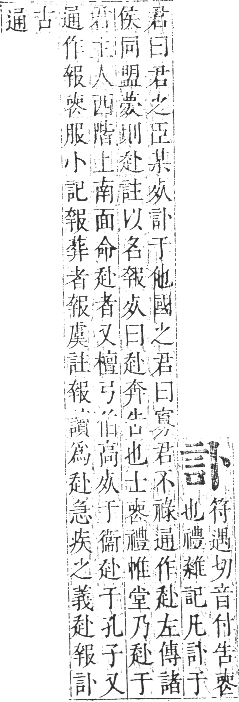 訃
符遇切音付告喪
也禮雜記凡訃于
君曰君之臣某死訃于他國之君曰寡君不祿通作赴左傳諸
侯同盟薨則赴註以名報死曰赴奔告也士喪禮帷堂乃赴于
君主人西階上南面命赴者又檀弓伯高死于衞赴于孔子又
通作報喪服小記報葬者報虞註報讀爲赴急疾之義赴報訃
古
通